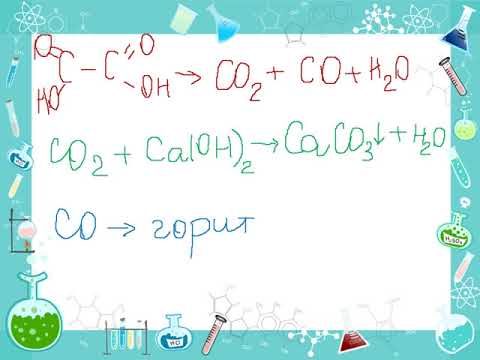 O HO C - C O OH → CO₂ + CO + H₂O
CO₂ + Ca(OH)₂ → CaCO₃↓ + H₂O
CO → горит
H₂SO₄
HCl